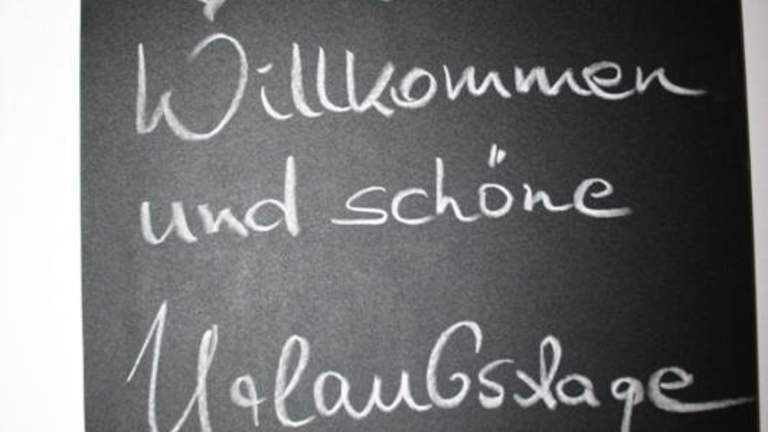 Willkommen
und schöne
Urlaubstage